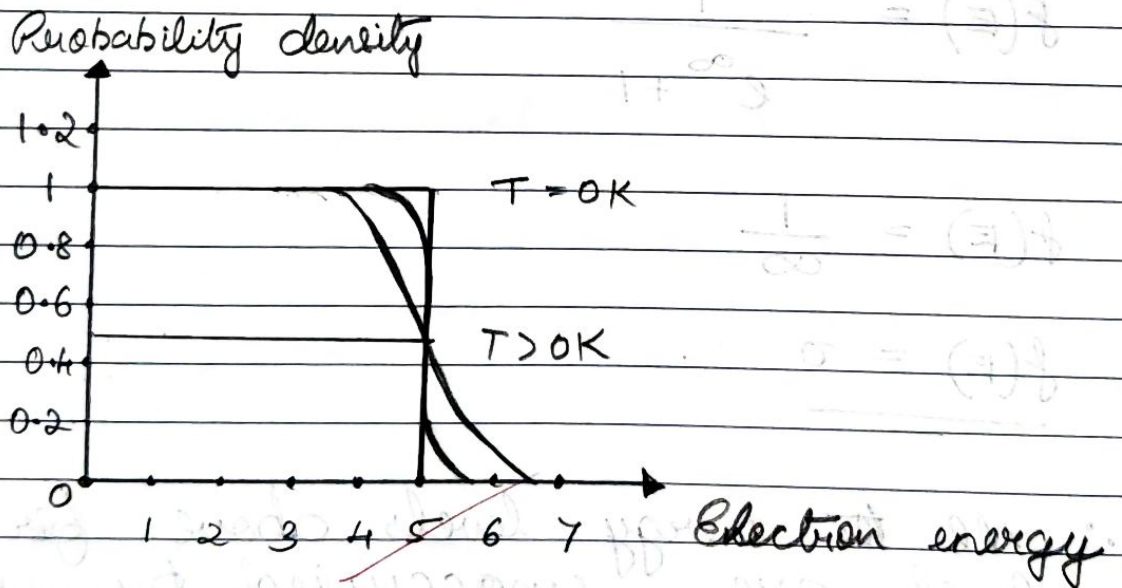 Probability density
1.2
1
T = 0K
0.8
0.6
T>0K
0.4
0.2
0
1 2 3 4 5 6 7
Electron energy